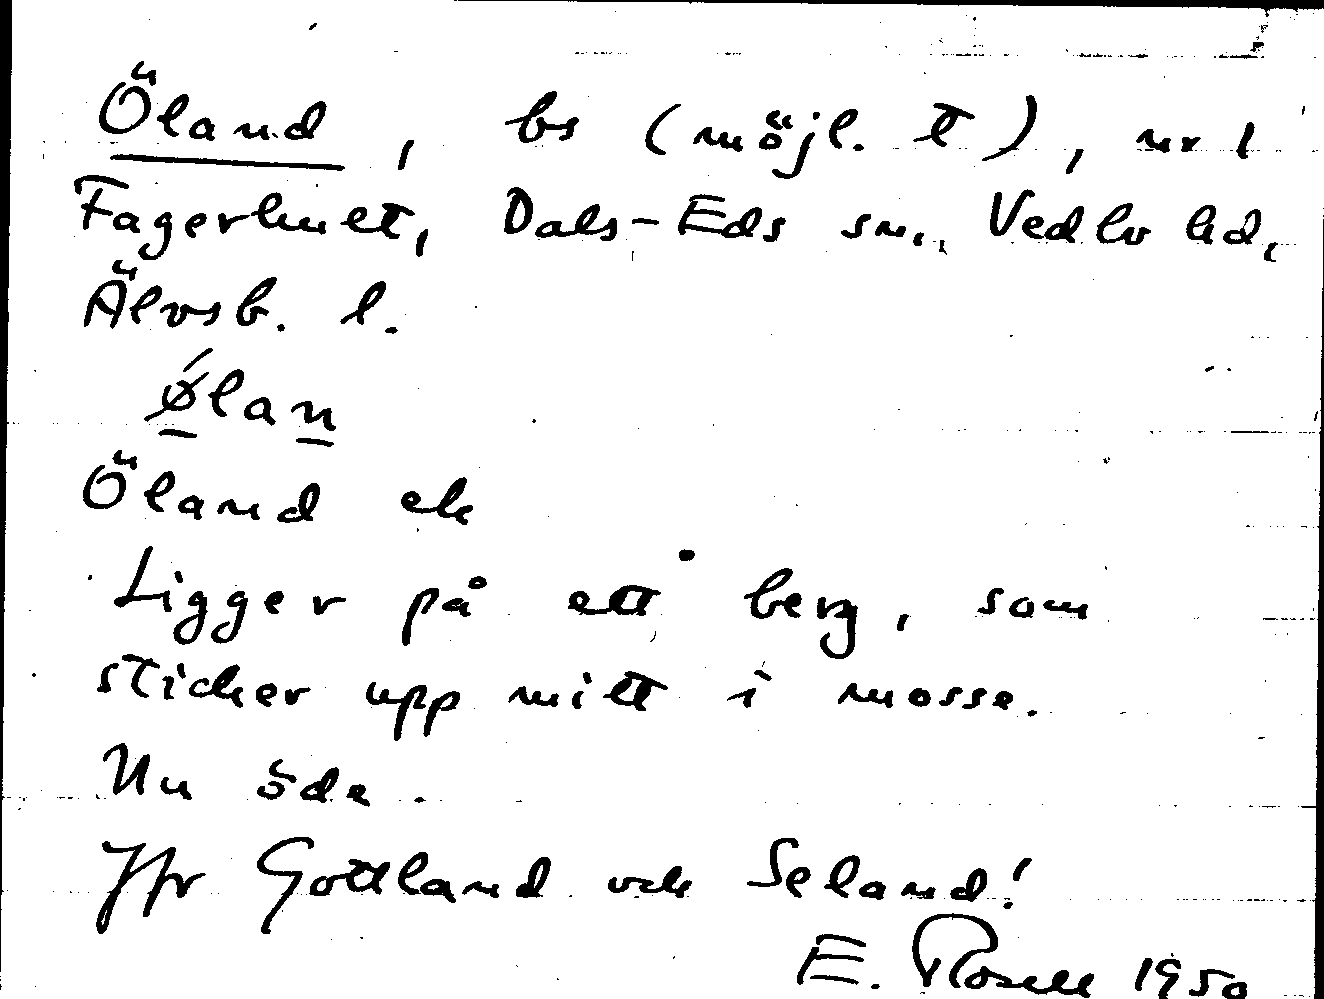 Öland, bs (möjl. t), nr 1
Fagerhult, Dals-Eds sn., Vedbo hd,
Älvsb. l.
Ǿlan
Öland ek
Ligger på ett berg, som
sticker upp mitt i mosse.
Nu öde.
Jfr Gottland och Seland!
E. Rosell 1950